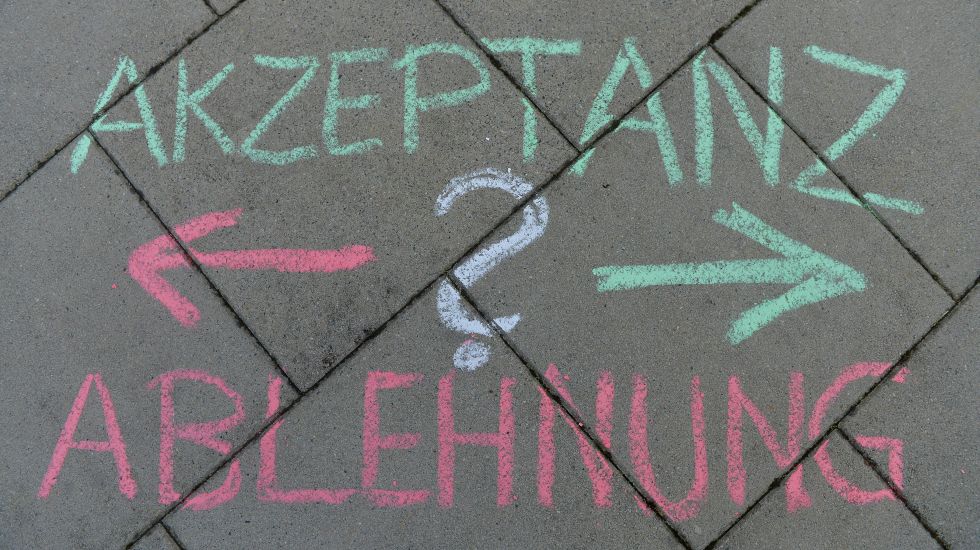 AKZEPTANZ
?
ABLEHNUNG